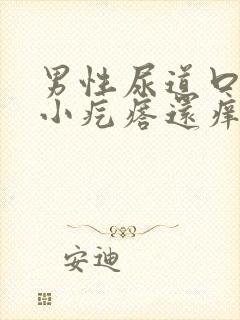 男性尿道口
小疙瘩還癢
安迪